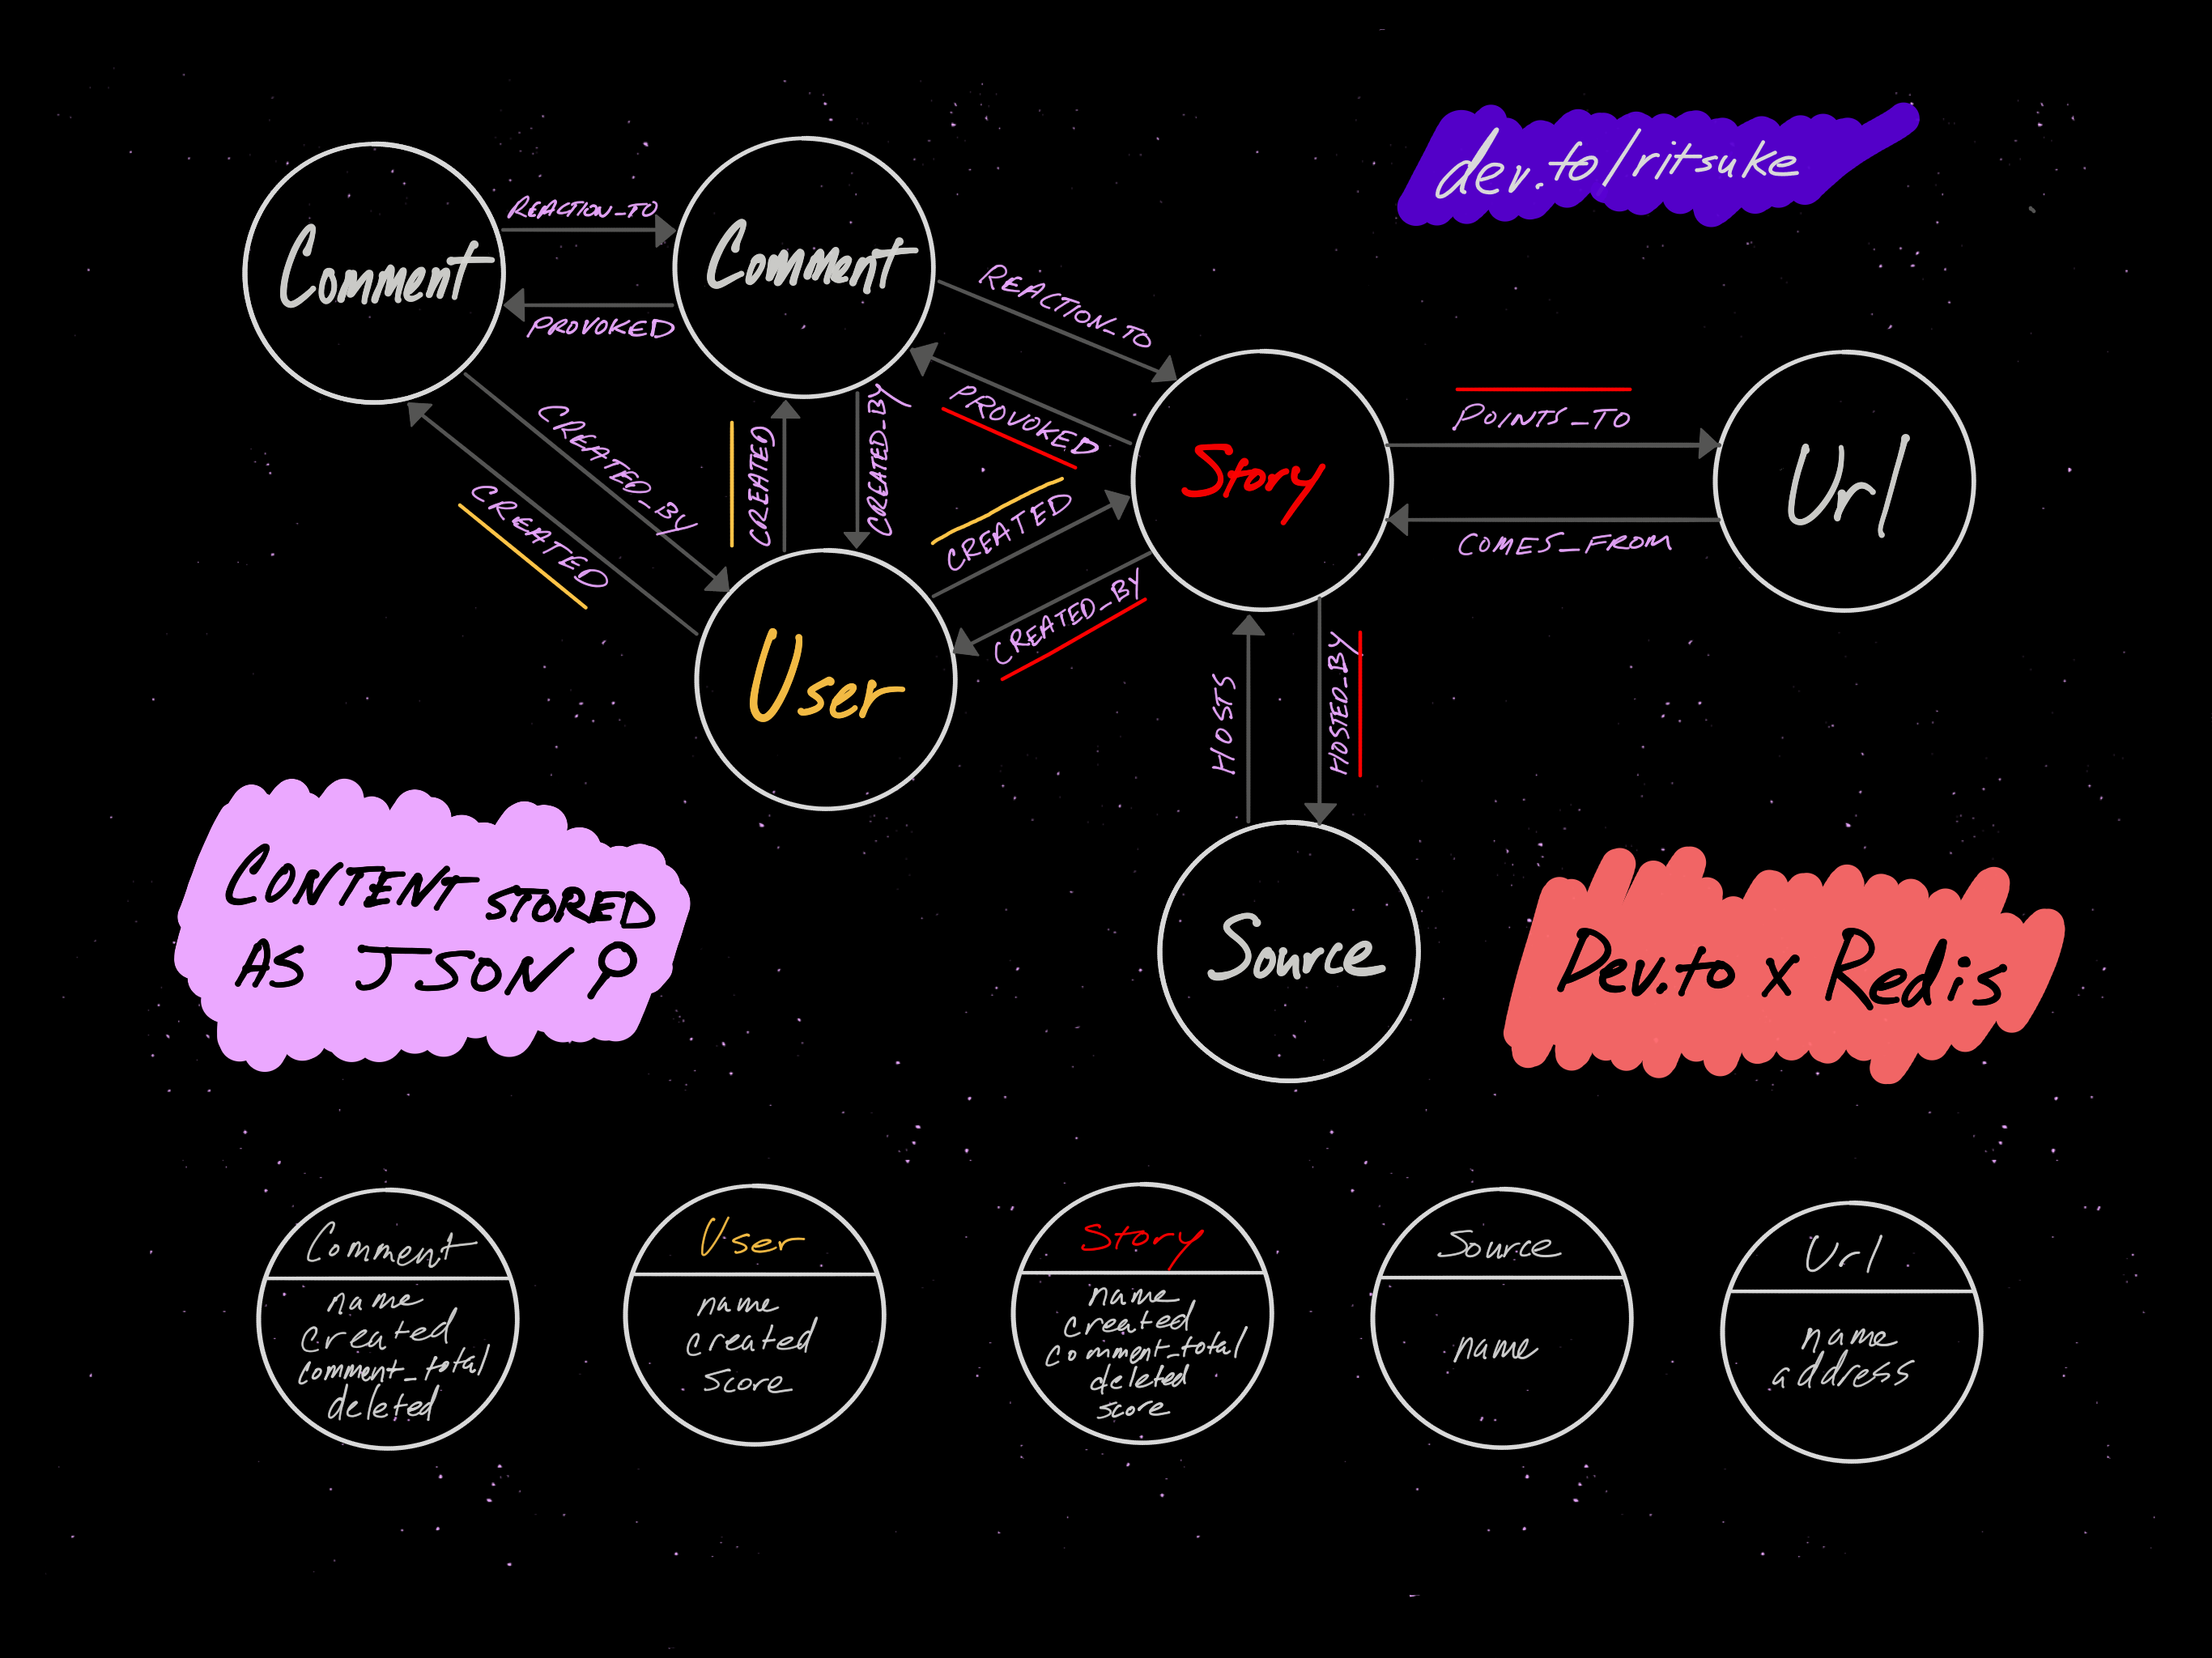 dev.to/ritsuke
Comment
REACTION_TO
PROVOKED
Comment
REACTION_TO
PROVOKED
CREATED_BY
CREATED
CREATED
CREATED_BY
CREATED
CREATED_BY
Story
POINTS_TO
COMES_FROM
Url
User
HOSTS
HOSTED_BY
Source
CONTENT STORED
AS JSON
Dev.to x Redis
Comment
name
created
comment_total
deleted
User
name
created
score
Story
name
created
comment_total
deleted
score
Source
name
Url
name
address